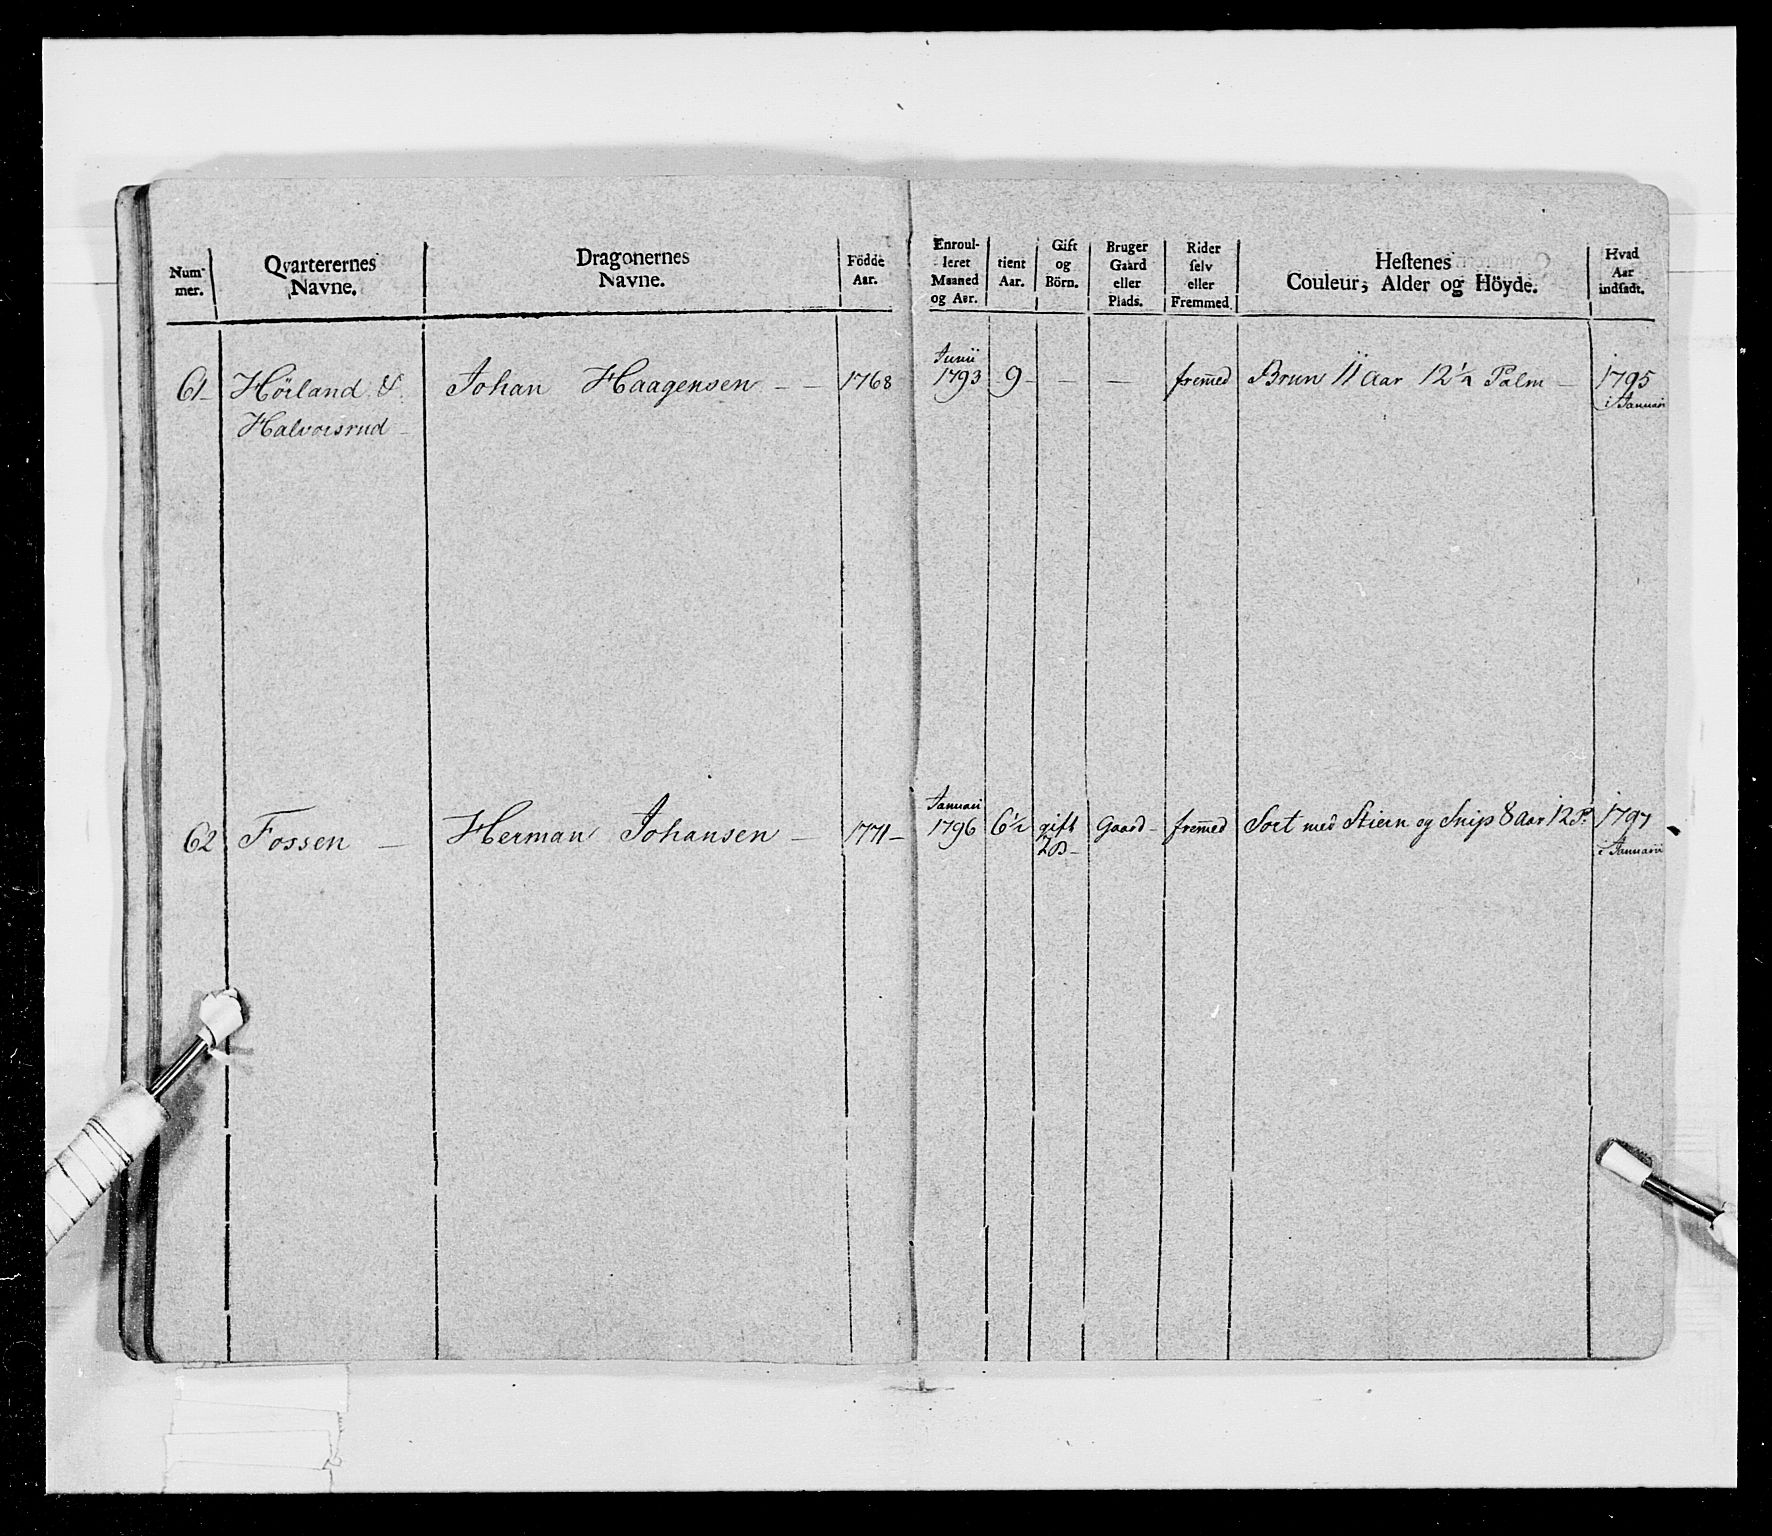 Num-
mer.
Qvarterernes
Navne.
Dragonernes
Navne.
Födde
Aar.
Enroul-
leret
Maaned
og Aar.
tient
Aar.
Gift
og
Börn.
Bruger
Gaard
eller
Plads.
Rider
selv
eller
Fremmed.
Hestenes
Couleur, Alder og Höyde.
Hvad
Aar
indsadt.
61 Hörland &
Halvorsrud
Johan Haagensen - - 1768 Junii 1793 9 - - - fremed Brun 11 Aar 12½ Palm - 1795
i Januari
62 Fossen - Herman Johansen - 1771 - Januari 1796 6½ gift Gaard - fremed Sort med Stiern og Snip 8 Aar 12 P. 1797
2 B - i Januarii